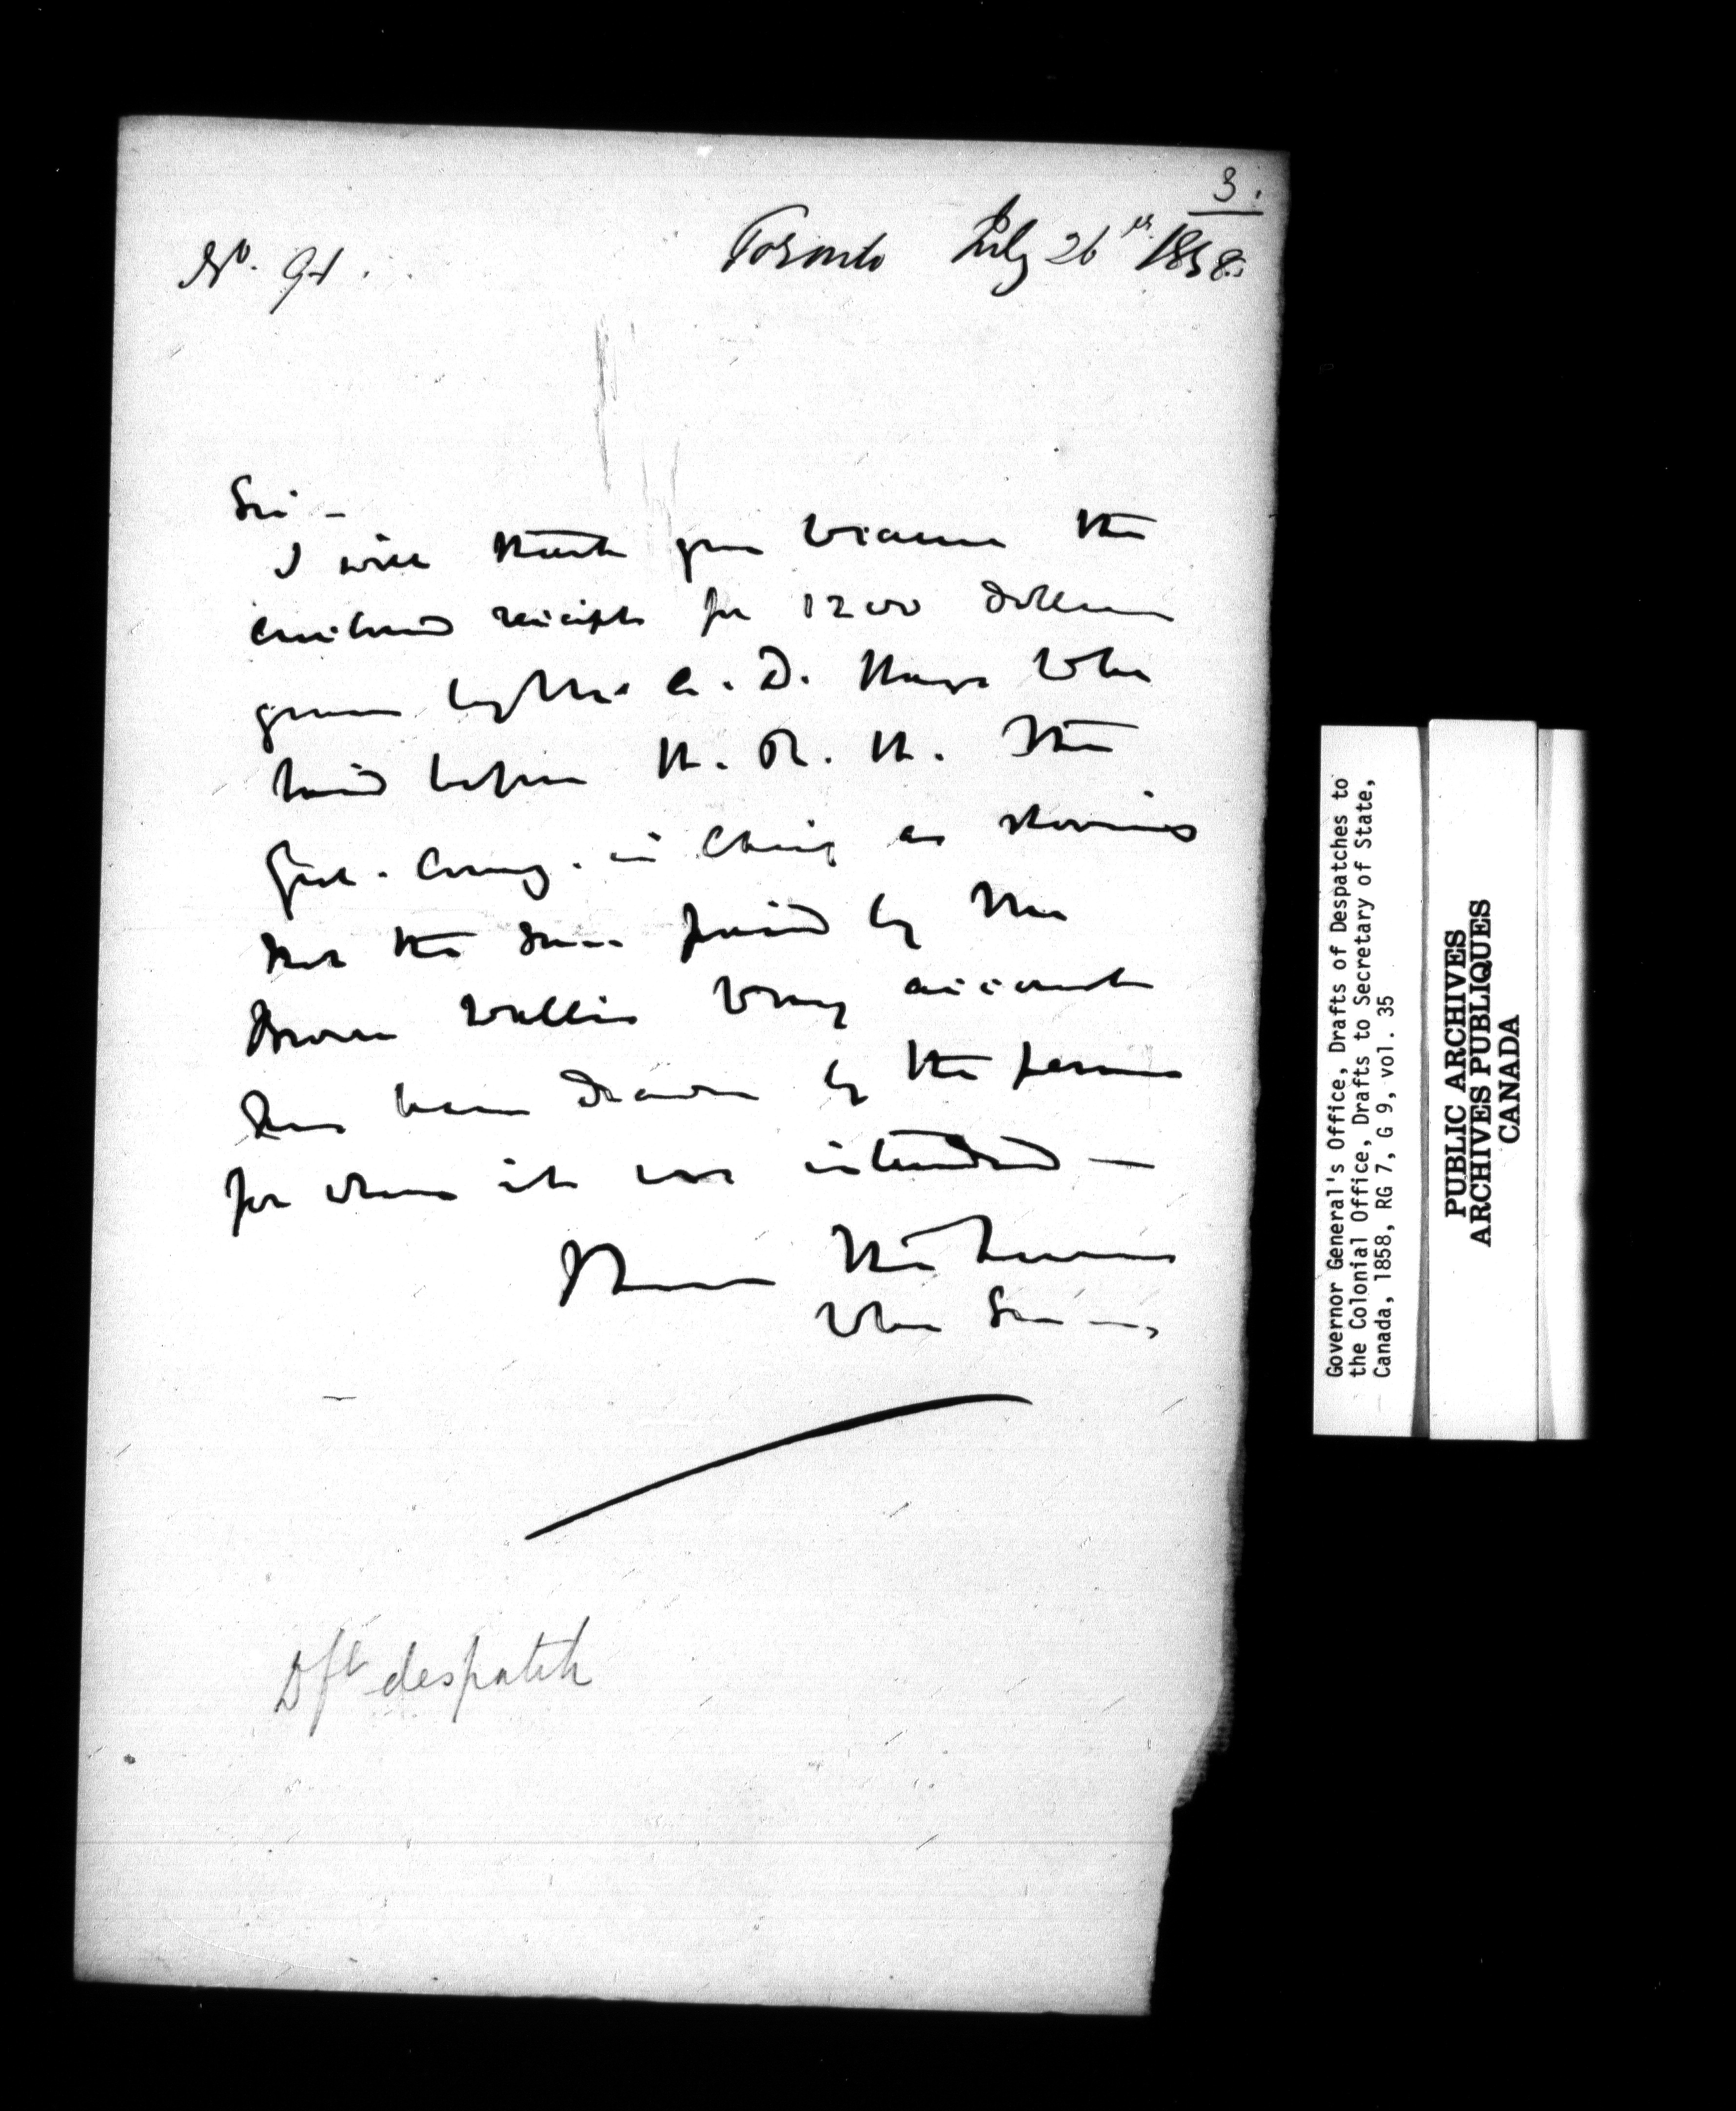 3.
No. 91.
Toronto July 26th 1858.
Sir -
I will thank you to cause the
enclosed receipts for 1200 dollars
given by the A. D. to be
laid before H. R. H. The
Genl. Comg. in Chief as showing
that the sum paid by Mr
Brown Wallis to my account
has been drawn by the persons
for whom it was intended —
I have the honour
to be Sir
Dft despatch
Governor General's Office, Drafts of Despatches to
the Colonial Office, Drafts to Secretary of State,
Canada, 1858, RG 7, G 9, vol. 35
PUBLIC ARCHIVES
ARCHIVES PUBLIQUES
CANADA